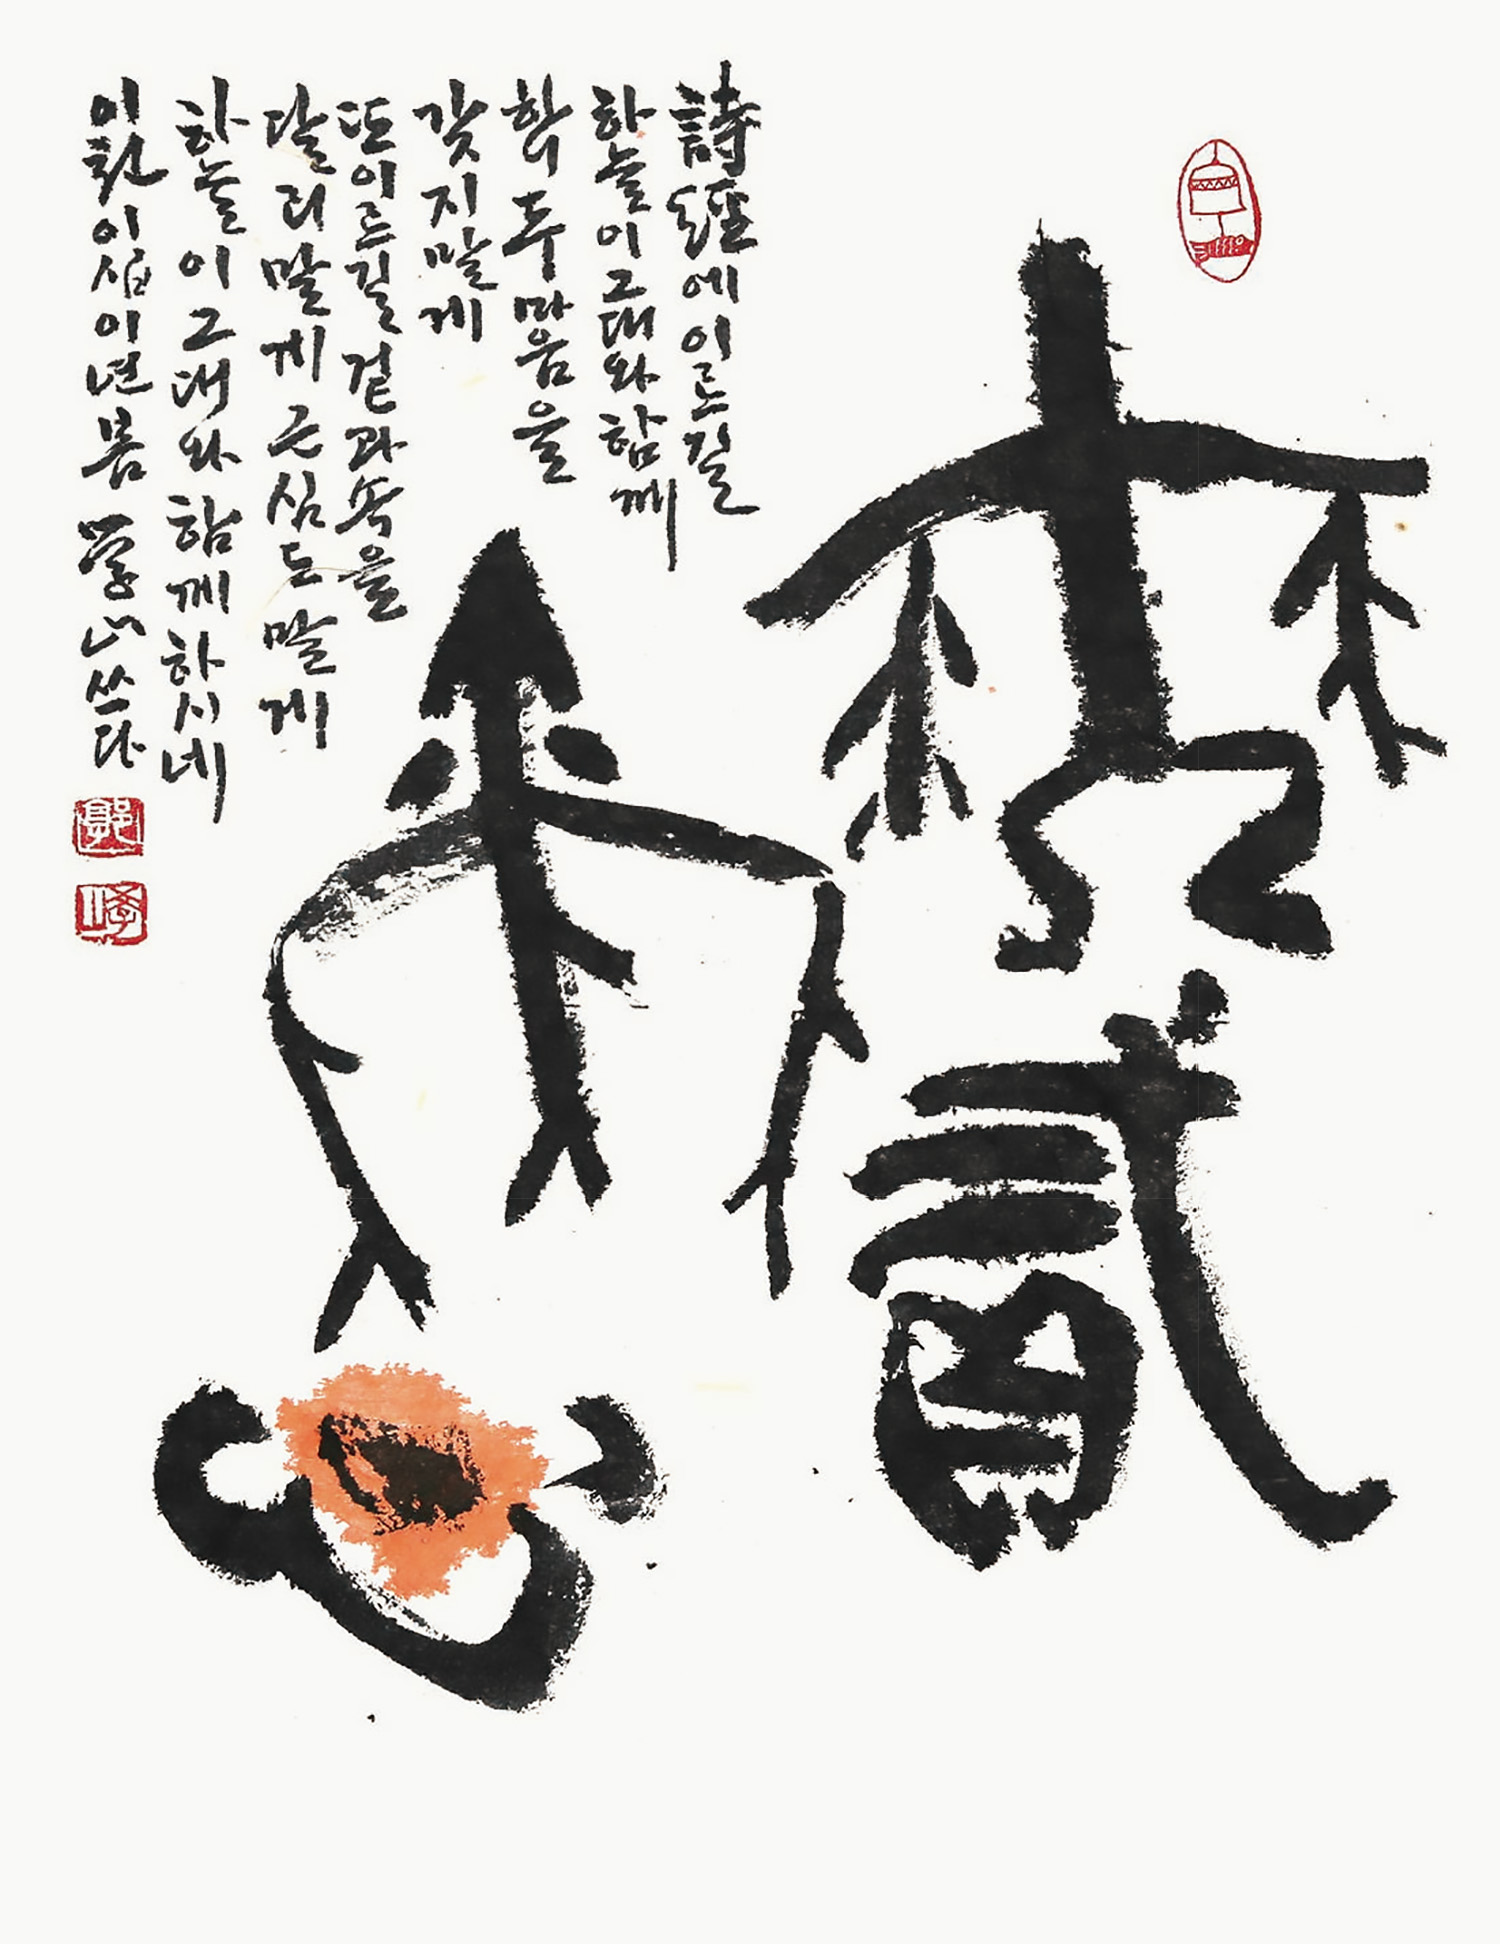 無貳
爾心
詩經에이르길
하늘이그대와함께
하니두마음을
갖지말게
또이르길겉과속을
달리말게근심도말게
하늘이그대와함께하시네
이천이십이년봄 學山쓰다